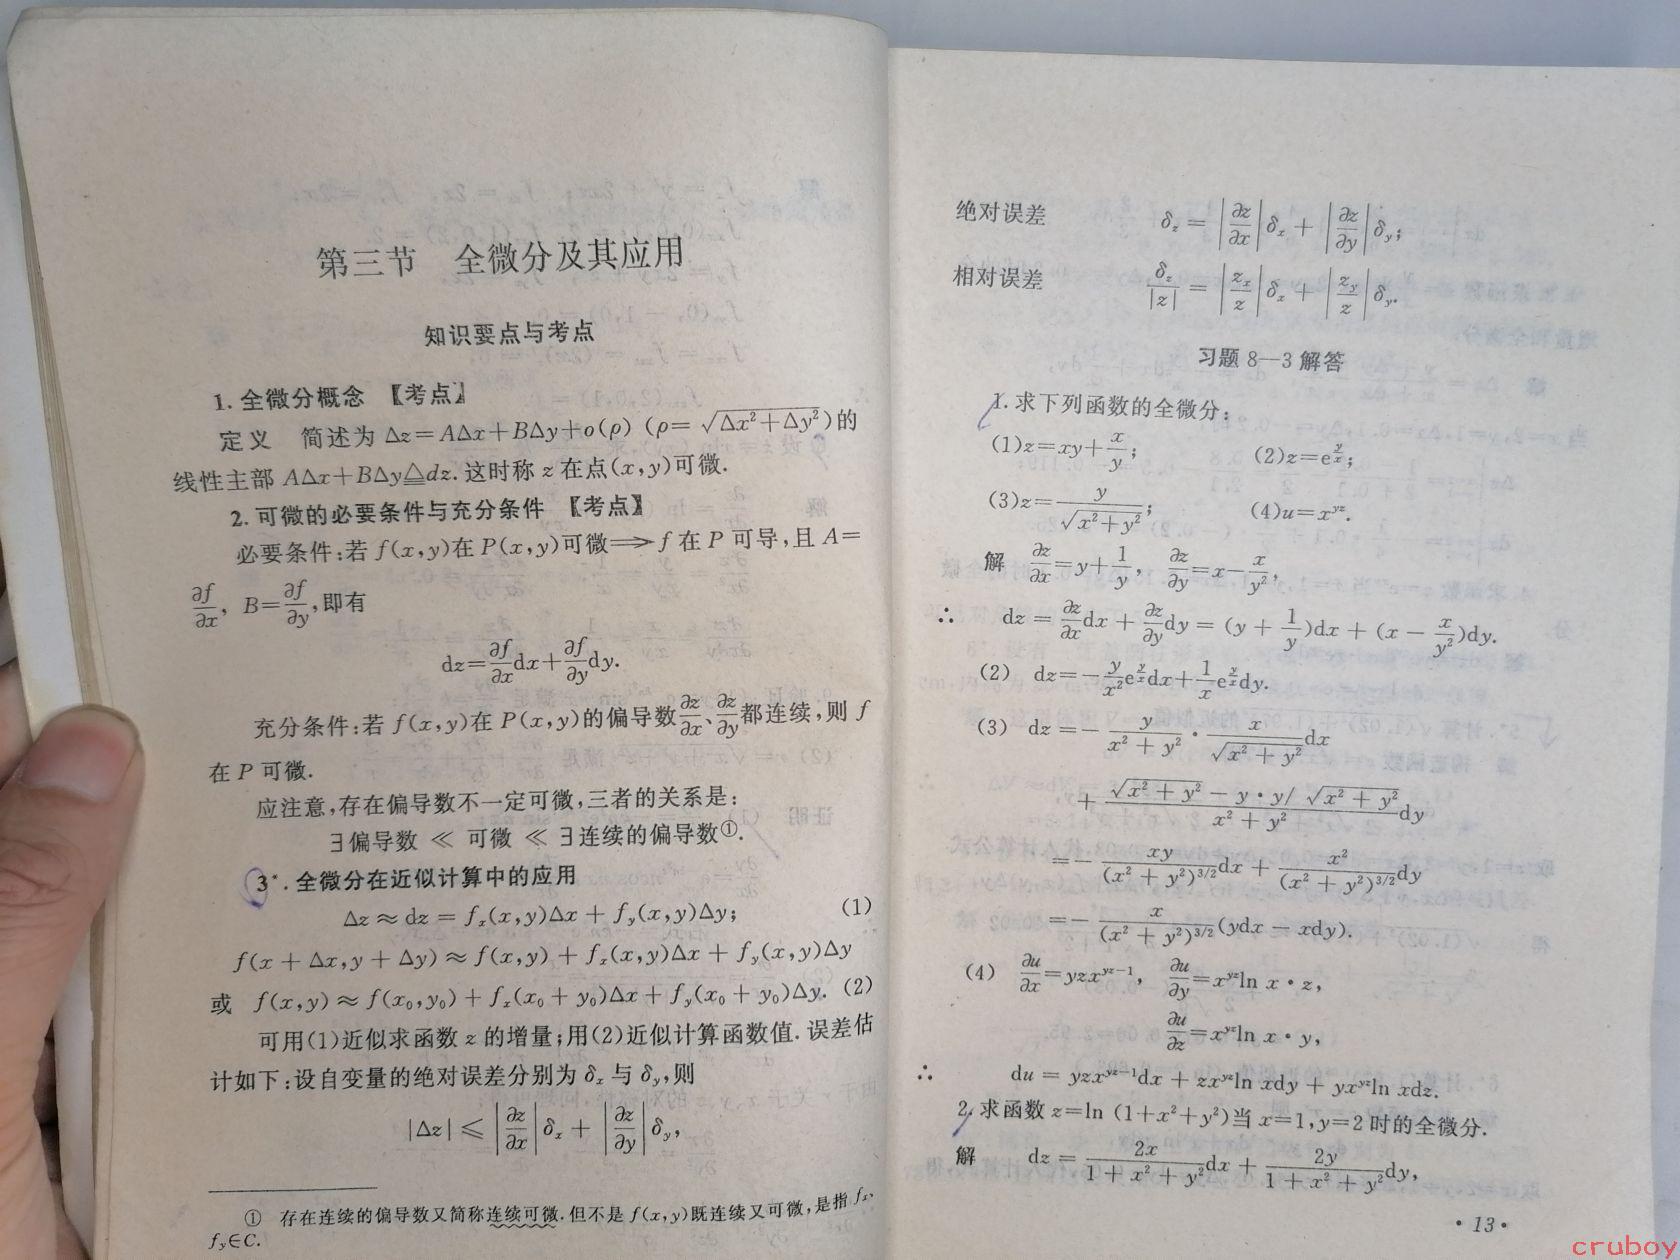 第三节 全微分及其应用
知识要点与考点
1. 全微分概念 【考点】
定义 简述为 Δz=AΔx+BΔy+o(ρ) (ρ=√(Δx²+Δy²))的
线性主部 AΔx+BΔy≜dz. 这时称 z 在点(x,y)可微.
2. 可微的必要条件与充分条件 【考点】
必要条件:若 f(x,y)在 P(x,y)可微⟹f 在 P 可导,且 A=
∂f/∂x, B=∂f/∂y,即有
dz=∂f/∂x dx+∂f/∂y dy.
充分条件:若 f(x,y)在 P(x,y)的偏导数∂z/∂x、∂z/∂y都连续,则 f
在 P 可微.
应注意,存在偏导数不一定可微,三者的关系是:
∃偏导数 ≪ 可微 ≪ ∃连续的偏导数①.
3*. 全微分在近似计算中的应用
Δz≈dz = fx(x,y)Δx + fy(x,y)Δy; (1)
f(x + Δx,y + Δy) ≈ f(x,y) + fx(x,y)Δx + fy(x,y)Δy
或 f(x,y) ≈ f(x₀,y₀) + fx(x₀ + y₀)Δx + fy(x₀ + y₀)Δy. (2)
可用(1)近似求函数 z 的增量;用(2)近似计算函数值. 误差估
计如下:设自变量的绝对误差分别为 δx 与 δy,则
|Δz| ≤ |∂z/∂x|δx + |∂z/∂y|δy,
① 存在连续的偏导数又简称连续可微. 但不是 f(x,y)既连续又可微,是指 fx,
fy∈C.
绝对误差 δz = |∂z/∂x|δx + |∂z/∂y|δy;
相对误差 δz/|z| = |zx/z|δx + |zy/z|δy.
习题 8—3 解答
1. 求下列函数的全微分:
(1)z=xy+x/y; (2)z=e^(y/x);
(3)z=y/√(x²+y²); (4)u=x^(yz).
解 ∂z/∂x=y+1/y, ∂z/∂y=x-x/y²,
∴ dz = ∂z/∂x dx + ∂z/∂y dy = (y + 1/y)dx + (x - x/y²)dy.
(2) dz=-y/x² e^(y/x)dx+1/x e^(y/x)dy.
(3) dz=- y/(x² + y²) · x/√(x² + y²) dx
+ (√(x² + y²) - y · y/√(x² + y²))/(x² + y²) dy
=- xy/(x² + y²)^(3/2) dx + x²/(x² + y²)^(3/2) dy
=- x/(x² + y²)^(3/2) (ydx - xdy).
(4) ∂u/∂x=yzx^(yz-1), ∂u/∂y=x^(yz)ln x · z,
∂u/∂z=x^(yz)ln x · y,
∴ du = yzx^(yz-1)dx + zx^(yz)ln xdy + yx^(yz)ln xdz.
2. 求函数 z=ln (1+x²+y²)当 x=1,y=2 时的全微分.
解 dz = 2x/(1 + x² + y²) dx + 2y/(1 + x² + y²) dy,
· 13 ·
cruboy